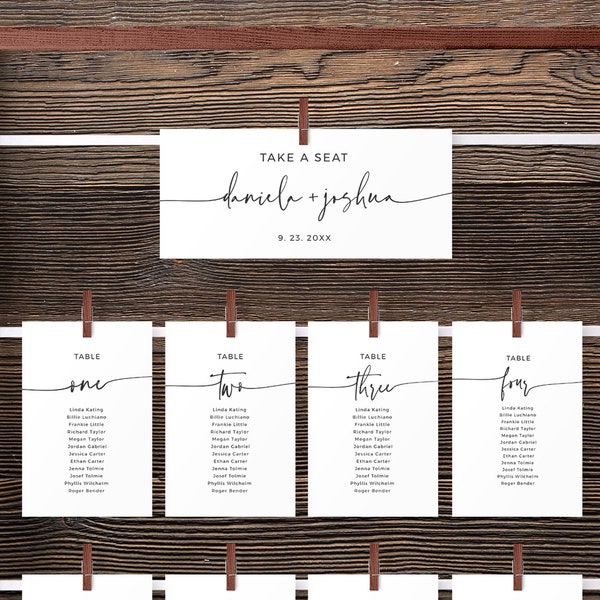 TAKE A SEAT
daniela + joshua
9. 23. 20XX
TABLE
one
Linda Kating
Billie Luchiano
Frankie Little
Richard Taylor
Megan Taylor
Jordan Gabriel
Jessica Carter
Ethan Carter
Jenna Tolmie
Josef Tolmie
Phyllis Wilcheim
Roger Bender
TABLE
two
Linda Kating
Billie Luchiano
Frankie Little
Richard Taylor
Megan Taylor
Jordan Gabriel
Jessica Carter
Ethan Carter
Jenna Tolmie
Josef Tolmie
Phyllis Wilcheim
Roger Bender
TABLE
three
Linda Kating
Billie Luchiano
Frankie Little
Richard Taylor
Megan Taylor
Jordan Gabriel
Jessica Carter
Ethan Carter
Jenna Tolmie
Josef Tolmie
Phyllis Wilcheim
Roger Bender
TABLE
four
Linda Kating
Billie Luchiano
Frankie Little
Richard Taylor
Megan Taylor
Jordan Gabriel
Jessica Carter
Ethan Carter
Jenna Tolmie
Josef Tolmie
Phyllis Wilcheim
Roger Bender